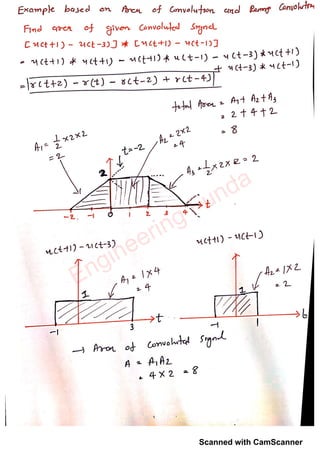 Example based on Area of Convolution and Ramp Convolution
Find area of given Convoluted Signal
[u(t+1) - u(t-3)] * [u(t+1) - u(t-1)]
= u(t+1) * u(t+1) - u(t+1) * u(t-1) - u(t-3) * u(t+1)
+ u(t-3) * u(t-1)
= r(t+2) - r(t) - r(t-2) + r(t-4)
total Area = A1 + A2 + A3
= 2 + 4 + 2
= 8
A1 = 1/2 x 2 x 2
= 2
t=-2
A2 = 2x2
= 4
A3 = 1/2 x 2 x 2 = 2
2
-2 -1 0 1 2 3 4 t
u(t+1) - u(t-3)
A1 = 1x4
= 4
1
-1 3 t
u(t+1) - u(t-1)
A2 = 1x2
= 2
1
-1 1 t
→ Area of Convoluted Signal
A = A1A2
= 4 x 2 = 8
Scanned with CamScanner